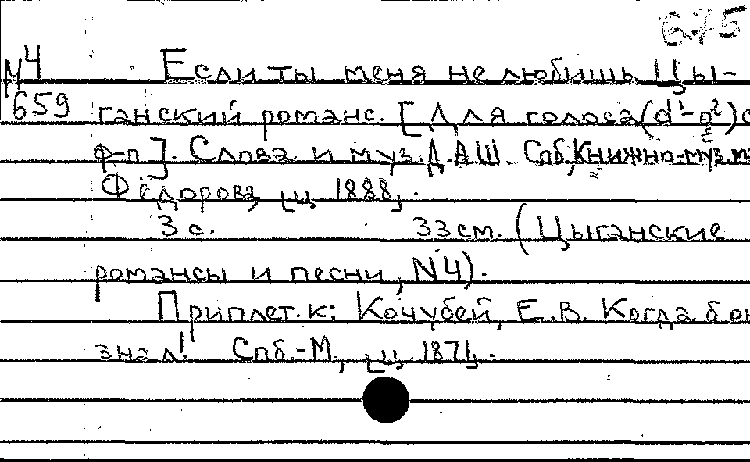 675
№4 Если ты меня не любишь. Цы-
659 ганский романс. [Для голоса (d¹-g²) с
ф-п]. Слова и муз. Д.А.Ш. Спб, Книжно-муз.м.
Фёдорова, ц. 1888,.
3 с. 33 см. (Цыганские
романсы и песни, N4).
Приплет. к: Кочубей, Е.В. Когда б он
знал! Спб.-М, ц. 1871,.